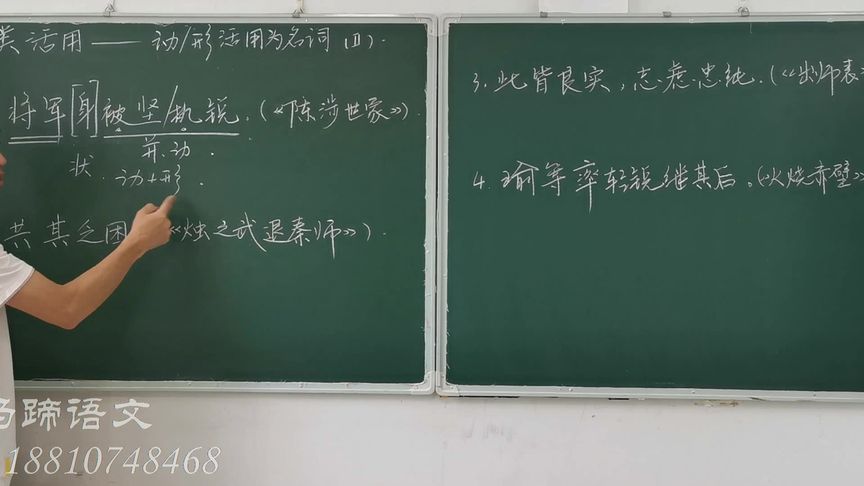 类活用——动/形活用为名词(Ⅱ).
将军[身]被坚/执锐.(《陈涉世家》).
并.动.
状.动+形.
共其乏困 《烛之武退秦师》).
3.此皆良实,志虑忠纯.(《出师表》
4.瑜等率轻锐继其后.(《火烧赤壁》
蹄语文
18810748468